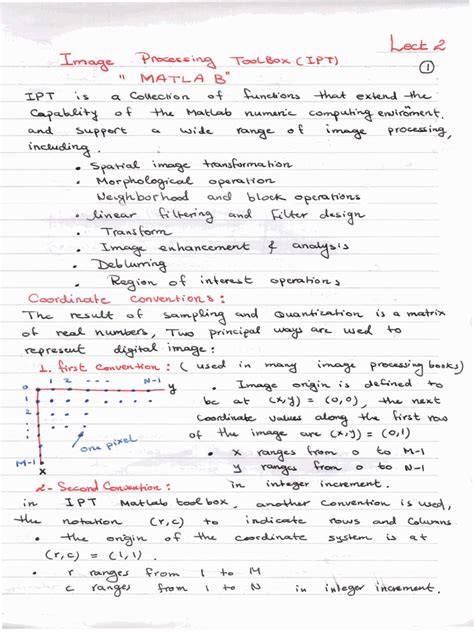 Lect 2
Image Processing ToolBox (IPT)
①
" MATLAB"
IPT is a Collection of functions that extend the
Capability of the Matlab numeric computing enviroment.
and Support a wide range of image processing,
including.
• Spatial image transformation
• Morphological operation
Neighborhood and block operations
• linear filtering and Filter design
• Transform
• Image enhancement & analysis
• Deblurring
• Region of interest operations
Coordinate Conventions:
The result of sampling and Quantization is a matrix
of real numbers, Two principal ways are used to
represent digital image:
1. first Convention: ( used in many image processing books)
0 1 2 N-1 y
1
2
M-1
x
one pixel
• Image origin is defined to
be at (x,y) = (0,0), the next
Coordinate values along the first row
of the image are (x,y) = (0,1)
• x ranges from 0 to M-1
y ranges from 0 to N-1
in integer increment.
2- Second Convention:
in IPT Matlab toolbox, another Convention is used,
the notation (r,c) to indicate rows and Columns.
• the origin of the coordinate system is at
(r,c) = (1,1).
• r ranges from 1 to M
c ranges from 1 to N in integer increment.